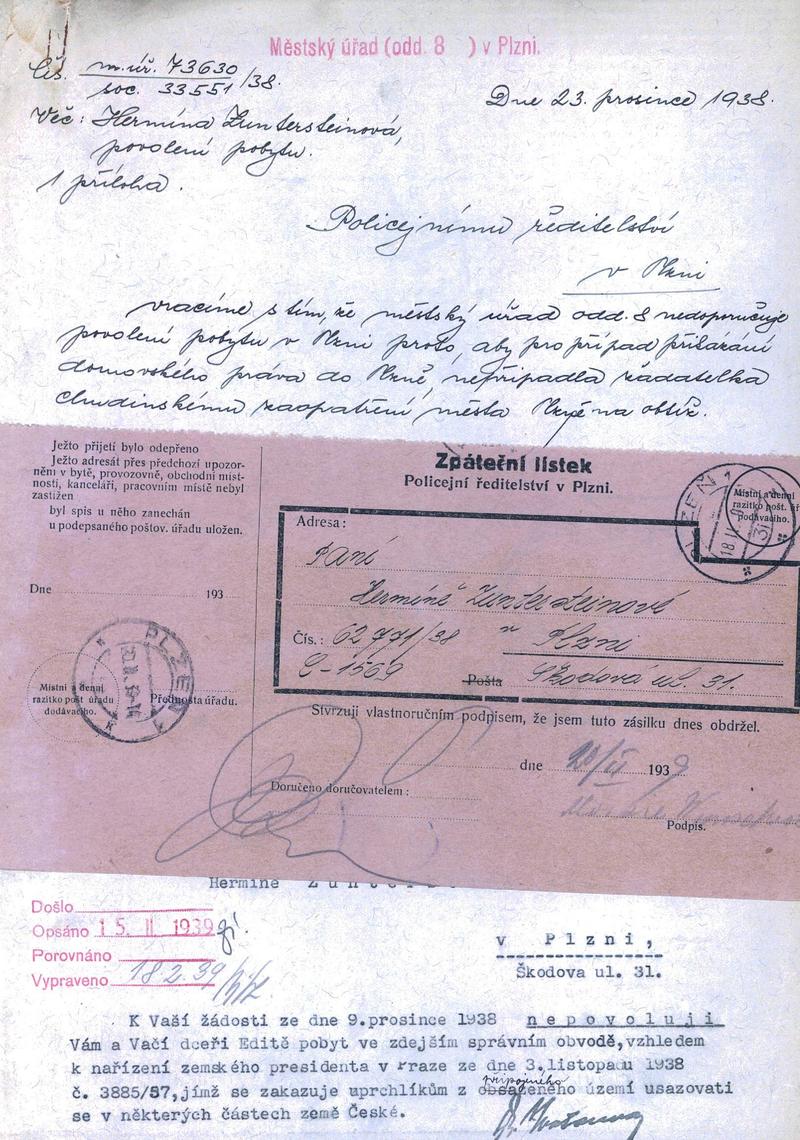 Městský úřad (odd. 8 ) v Plzni.
Čís. m.úř. 73630
soc. 33551/38.
Dne 23. prosince 1938.
Věc: Hermína Zuntersteinová,
povolení pobytu.
1 příloha.
Policejnímu ředitelství
v Plzni
vracíme s tím, že městský úřad odd. 8 nedoporučuje
povolení pobytu v Plzni proto, aby pro případ přikázání
domovského práva do Plzně, nepřipadla žadatelka
chudinskému zaopatření města Plzně na obtíž.
Ježto přijetí bylo odepřeno
Ježto adresát přes předchozí upozor-
něn v bytě, provozovně, obchodní míst-
nosti, kanceláři, pracovním místě nebyl
zastižen
byl spis u něho zanechán
u podepsaného poštov. úřadu uložen.
Dne 193
Místní a denní
razítko pošt. úřadu
dodávacího.
PLZEŇ
Přednosta úřadu.
Zpáteční lístek
Policejní ředitelství v Plzni.
PLZEŇ 1
Místní a denní
razítko pošt. úř
podávacího.
Adresa:
Paní
Hermíně Zuntersteinové
Čís.: 62771/38 v Plzni
C-1569 Pošta Škodova ul. 31.
Stvrzuji vlastnoručním podpisem, že jsem tuto zásilku dnes obdržel.
dne 20/II 1939
Doručeno doručovatelem:
Podpis.
Hermine
Došlo
Opsáno 15. II. 1939
Porovnáno
Vypraveno 18.2.39
v Plzni,
Škodova ul. 31.
K Vaší žádosti ze dne 9.prosince 1938 nepovoluji
Vám a Vačí dceři Editě pobyt ve zdejším správním obvodě,vzhledem
k nařízení zemského presidenta v Praze ze dne 3.listopadu 1938
č. 3885/57,jímž se zakazuje uprchlíkům z obsazeného území usazovati
se v některých částech země České.